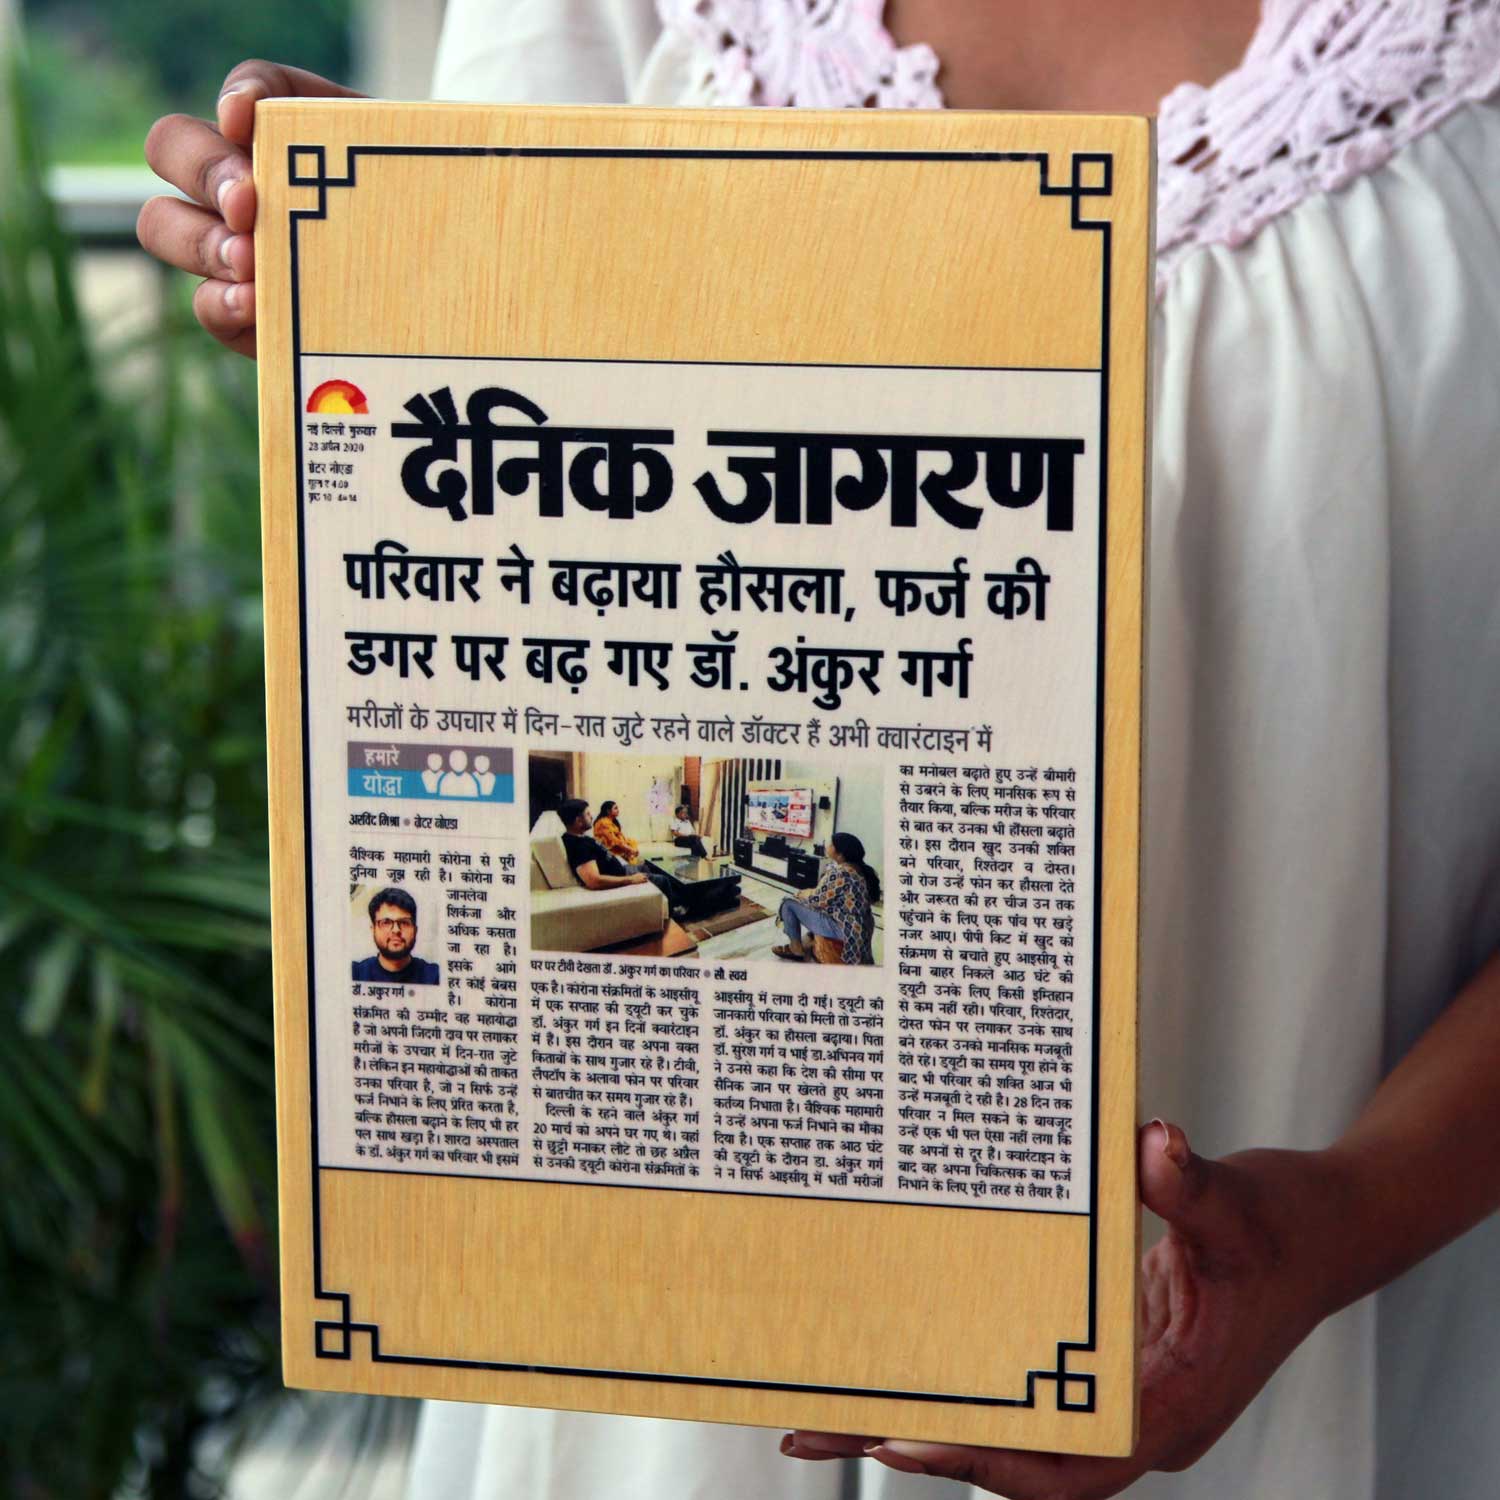 नई दिल्ली गुरुवार
23 अप्रैल 2020
ग्रेटर नोएडा
मूल्य ₹ 4.00
पृष्ठ 10
दैनिक जागरण
परिवार ने बढ़ाया हौसला, फर्ज की
डगर पर बढ़ गए डॉ. अंकुर गर्ग
मरीजों के उपचार में दिन-रात जुटे रहने वाले डॉक्टर हैं अभी क्वारंटाइन में
हमारे
योद्धा
अरविंद मिश्रा • ग्रेटर नोएडा
वैश्विक महामारी कोरोना से पूरी
दुनिया जूझ रही है। कोरोना का
जानलेवा
शिकंजा और
अधिक कसता
जा रहा है।
इसके आगे
हर कोई बेबस
है। कोरोना
डॉ. अंकुर गर्ग •
संक्रमित की उम्मीद वह महायोद्धा
है जो अपनी जिंदगी दाव पर लगाकर
मरीजों के उपचार में दिन-रात जुटे
हैं। लेकिन इन महायोद्धाओं की ताकत
उनका परिवार है, जो न सिर्फ उन्हें
फर्ज निभाने के लिए प्रेरित करता है,
बल्कि हौसला बढ़ाने के लिए भी हर
पल साथ खड़ा है। शारदा अस्पताल
के डॉ. अंकुर गर्ग का परिवार भी इसमें
घर पर टीवी देखता डॉ. अंकुर गर्ग का परिवार • सौ. स्वयं
एक है। कोरोना संक्रमितों के आइसीयू
में एक सप्ताह की ड्यूटी कर चुके
डॉ. अंकुर गर्ग इन दिनों क्वारंटाइन
में हैं। इस दौरान वह अपना वक्त
किताबों के साथ गुजार रहे हैं। टीवी,
लैपटॉप के अलावा फोन पर परिवार
से बातचीत कर समय गुजार रहे हैं।
दिल्ली के रहने वाले अंकुर गर्ग
20 मार्च को अपने घर गए थे। वहां
से छुट्टी मनाकर लौटे तो छह अप्रैल
से उनकी ड्यूटी कोरोना संक्रमितों के
आइसीयू में लगा दी गई। ड्यूटी की
जानकारी परिवार को मिली तो उन्होंने
डॉ. अंकुर का हौसला बढ़ाया। पिता
डॉ. सुरेश गर्ग व भाई डा.अभिनव गर्ग
ने उनसे कहा कि देश की सीमा पर
सैनिक जान पर खेलते हुए अपना
कर्तव्य निभाता है। वैश्विक महामारी
ने उन्हें अपना फर्ज निभाने का मौका
दिया है। एक सप्ताह तक आठ घंटे
की ड्यूटी के दौरान डा. अंकुर गर्ग
ने न सिर्फ आइसीयू में भर्ती मरीजों
का मनोबल बढ़ाते हुए उन्हें बीमारी
से उबरने के लिए मानसिक रूप से
तैयार किया, बल्कि मरीज के परिवार
से बात कर उनका भी हौंसला बढ़ाते
रहे। इस दौरान खुद उनकी शक्ति
बने परिवार, रिश्तेदार व दोस्त।
जो रोज उन्हें फोन कर हौसला देते
और जरूरत की हर चीज उन तक
पहुंचाने के लिए एक पांव पर खड़े
नजर आए। पीपी किट में खुद को
संक्रमण से बचाते हुए आइसीयू से
बिना बाहर निकले आठ घंटे की
ड्यूटी उनके लिए किसी इम्तिहान
से कम नहीं रही। परिवार, रिश्तेदार,
दोस्त फोन पर लगाकर उनके साथ
बने रहकर उनको मानसिक मजबूती
देते रहे। ड्यूटी का समय पूरा होने के
बाद भी परिवार की शक्ति आज भी
उन्हें मजबूती दे रही है। 28 दिन तक
परिवार न मिल सकने के बावजूद
उन्हें एक भी पल ऐसा नहीं लगा कि
वह अपनों से दूर हैं। क्वारंटाइन के
बाद वह अपना चिकित्सक का फर्ज
निभाने के लिए पूरी तरह से तैयार हैं।